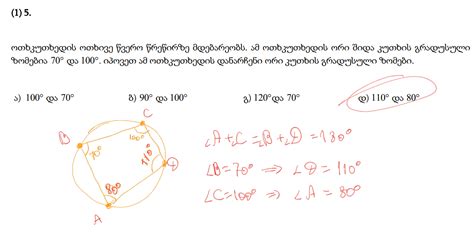 (1) 5.
ოთხკუთხედის ოთხივე წვერო წრეწირზე მდებარეობს. ამ ოთხკუთხედის ორი შიდა კუთხის გრადუსული
ზომებია 70° და 100°. იპოვეთ ამ ოთხკუთხედის დანარჩენი ორი კუთხის გრადუსული ზომები.
ა) 100° და 70° ბ) 90° და 100° გ) 120°და 70° დ) 110° და 80°
C
B 100°
70° 110° D
80°
A
∠A+∠C=∠B+∠D=180°
∠B=70° ⟹ ∠D=110°
∠C=100° ⟹ ∠A=80°